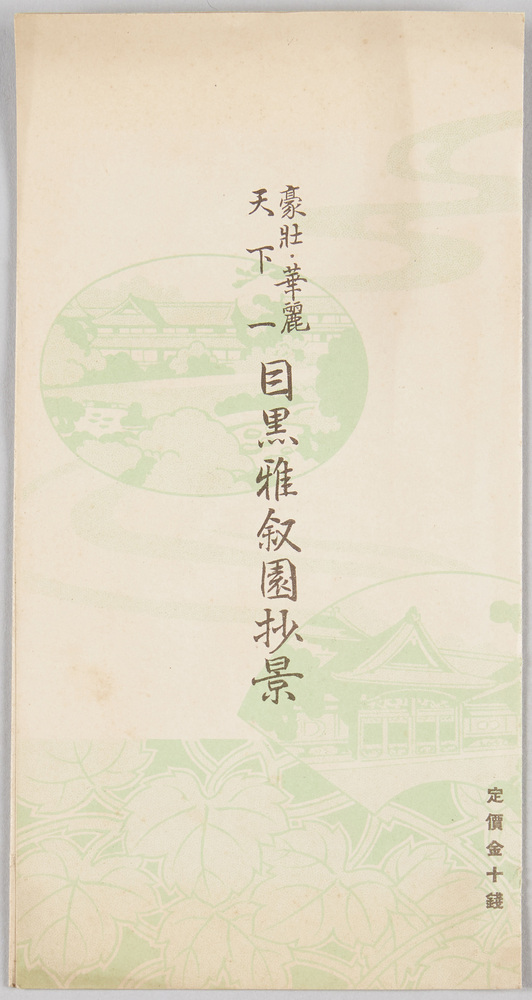 豪壯・華麗
天下一
目黒雅叙園抄景
定價金十錢